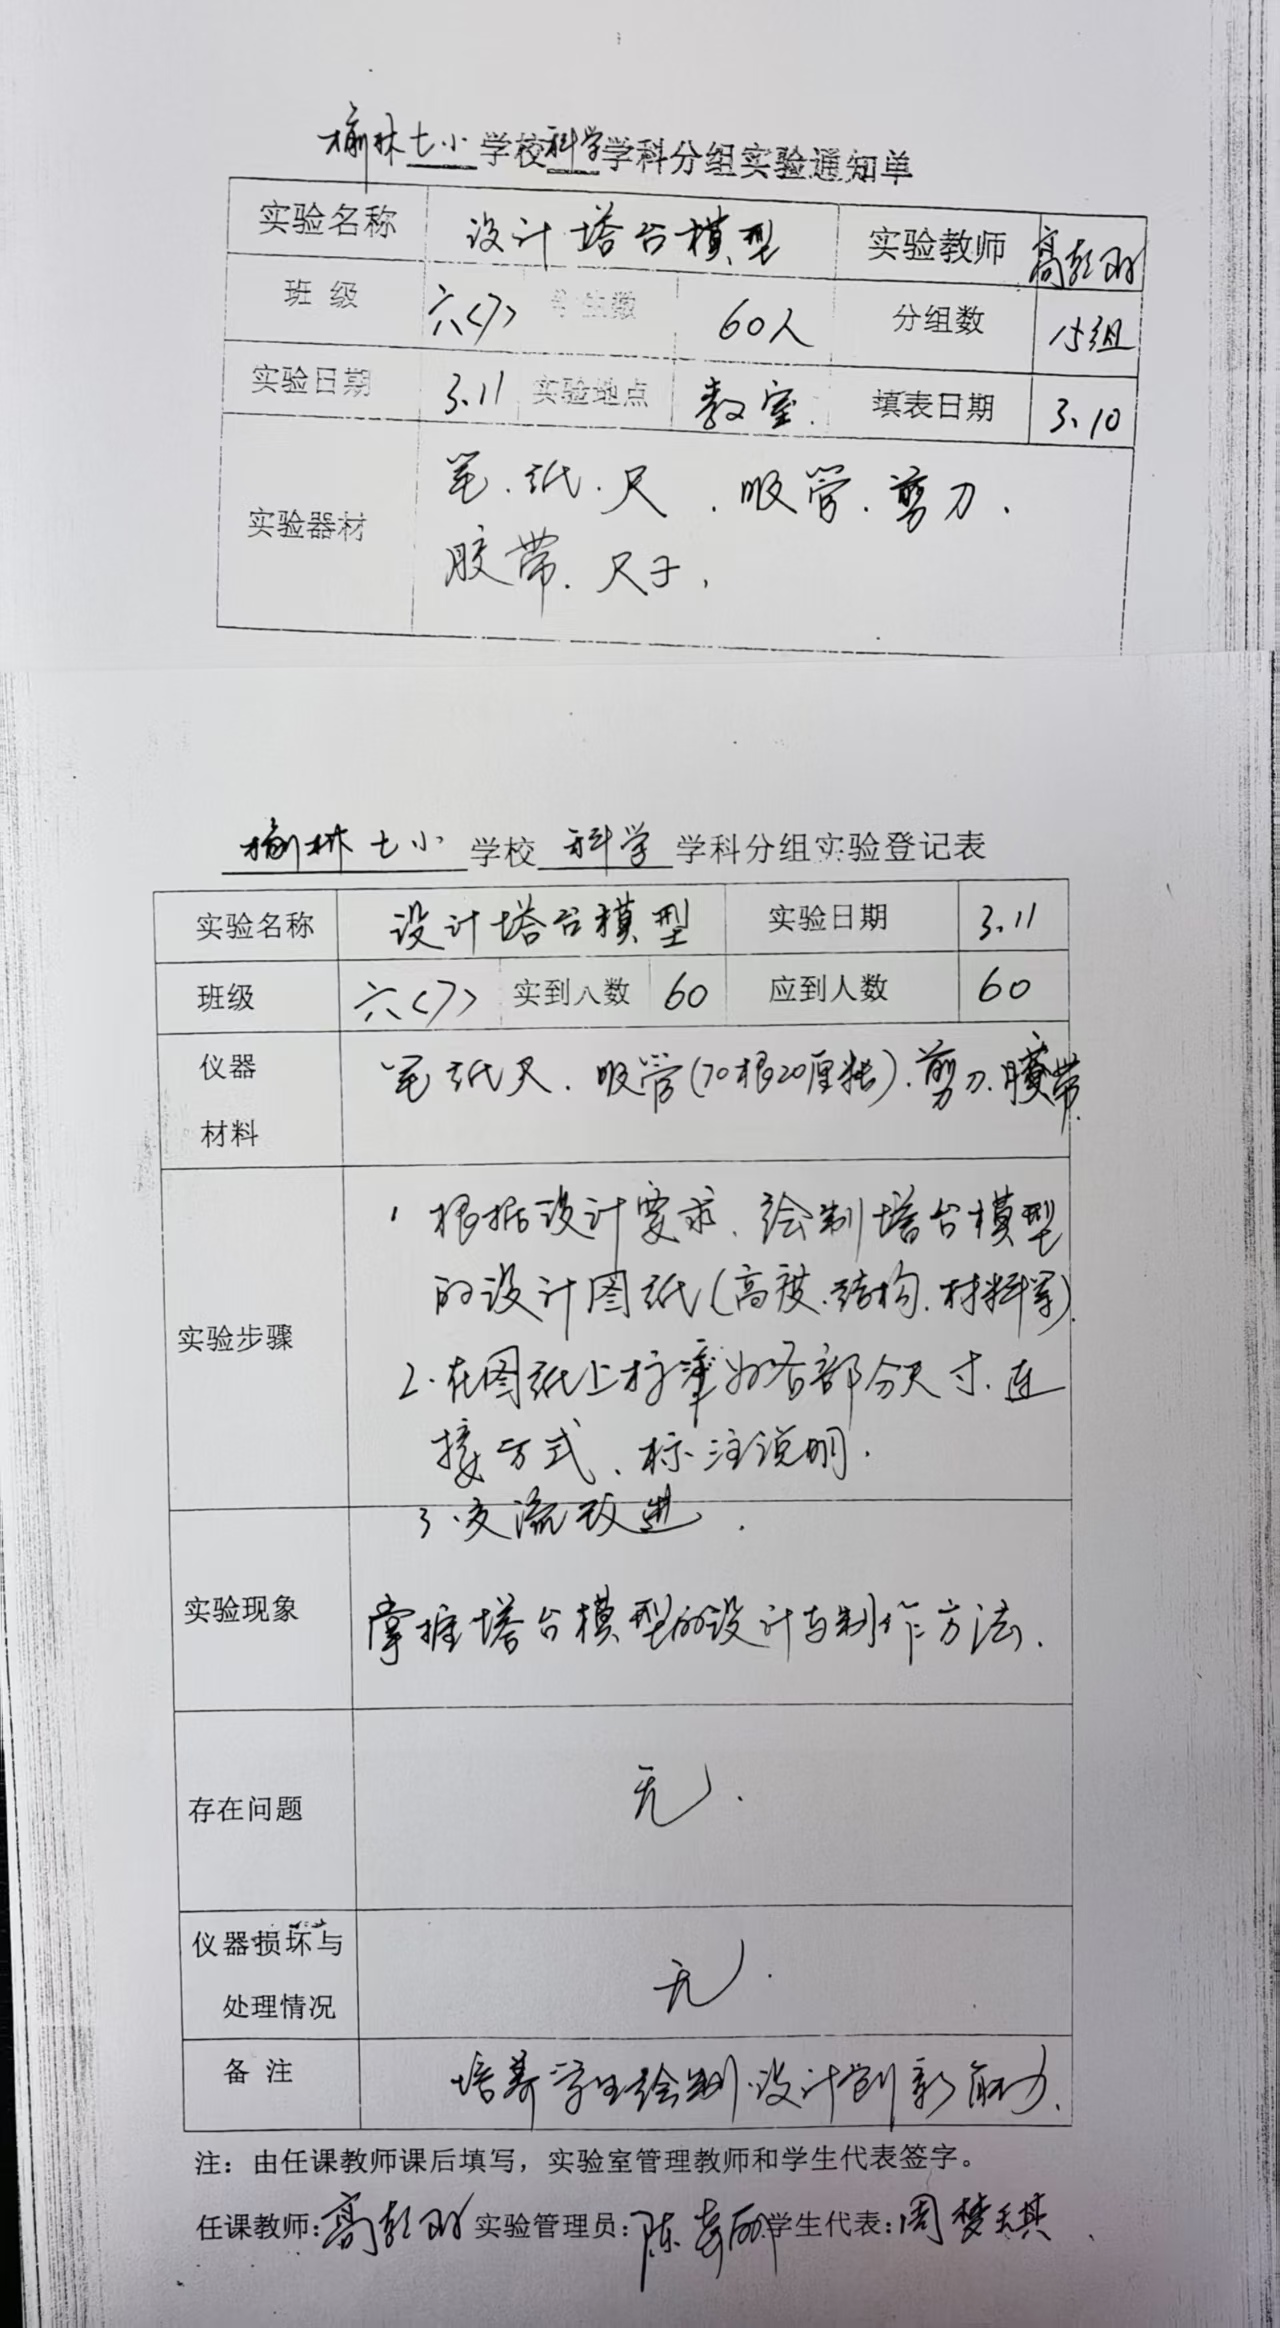 榆林七小学校科学学科分组实验通知单
实验名称 设计塔台模型 实验教师
班 级 六〈7〉 学生数 60人 分组数 15组
实验日期 3.11 实验地点 教室. 填表日期 3.10
笔.纸.尺.吸管.剪刀.
实验器材
胶带.尺子.
榆林七小 学校 科学 学科分组实验登记表
实验名称 设计塔台模型 实验日期 3.11
班级 六〈7〉 实到人数 60 应到人数 60
仪器 笔纸尺.吸管(70根20厘米长).剪刀.胶带.
材料
1 根据设计要求.绘制塔台模型
的设计图纸(高度.结构.材料等).
实验步骤
2.在图纸上标准好各部分尺寸.连
接方式、标注说明.
3.交流改进.
实验现象 掌握塔台模型的设计与制作方法.
存在问题 无.
仪器损坏与
处理情况 无.
备 注 培养学生绘制.设计创新能力.
注：由任课教师课后填写，实验室管理教师和学生代表签字。
任课教师: 实验管理员: 陈 学生代表: 周梦琪